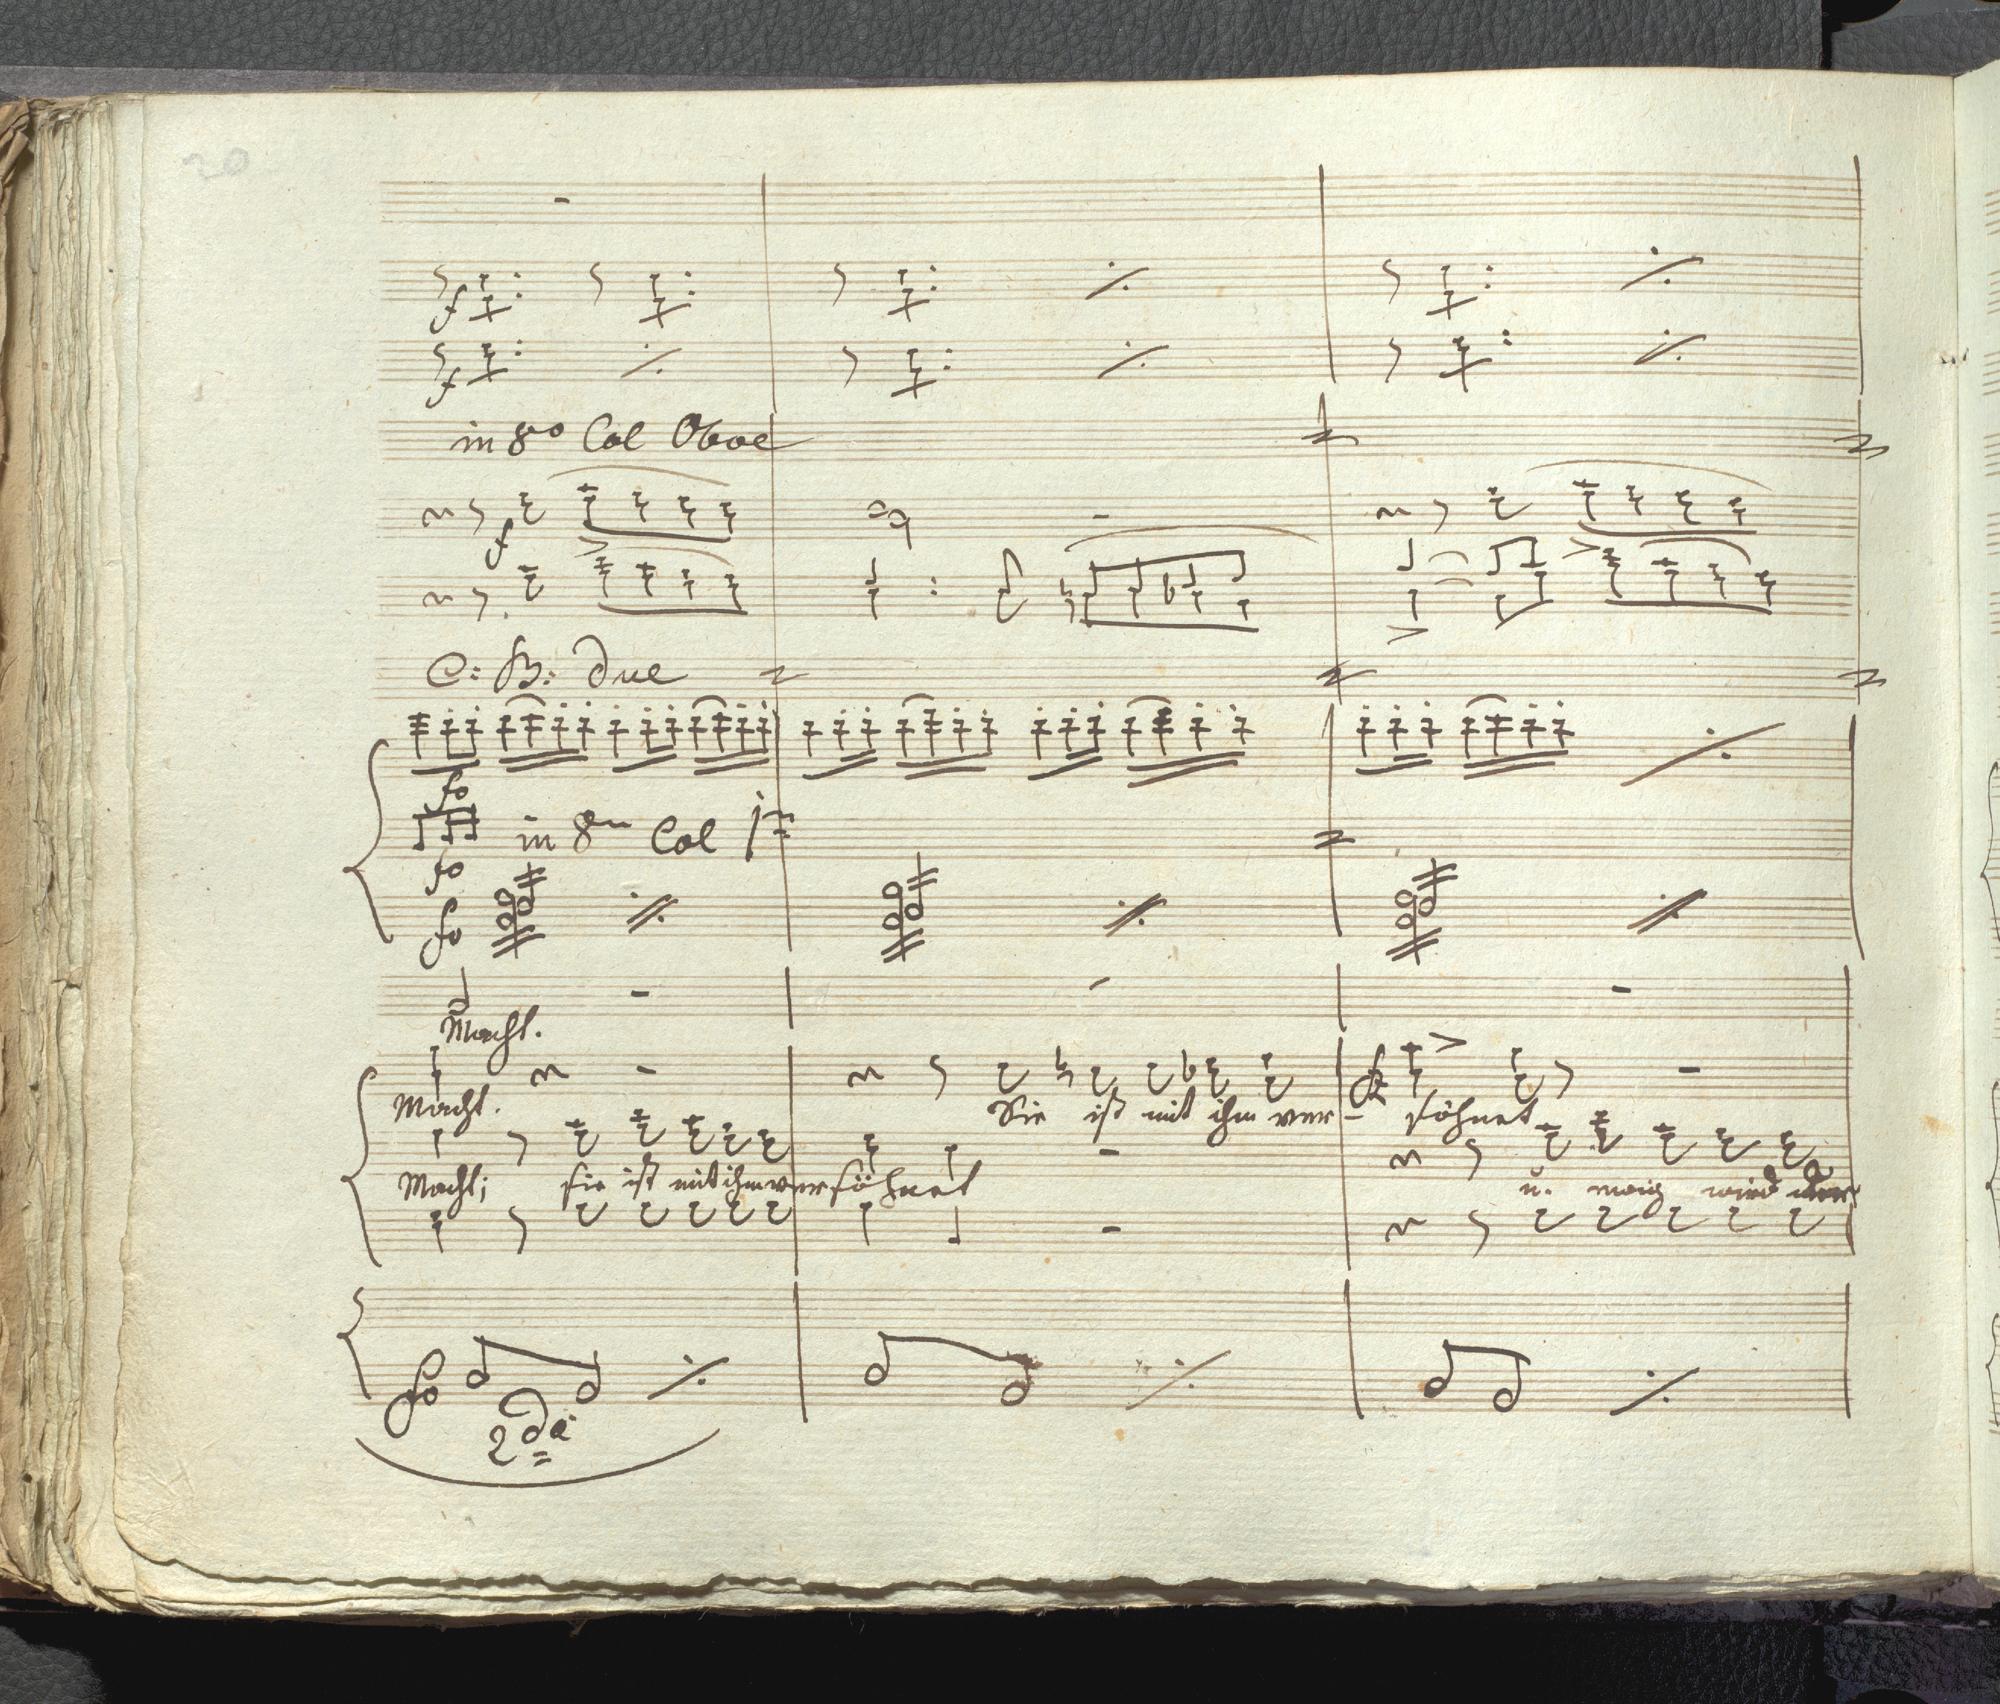 20
f
f
in 8vo Col Oboe
f
C: B: due
fo
in 8vo Col
fo
fo
Macht.
Macht. Sie ist mit ihm ver- söhnet
Macht; sie ist mit ihm versöhnet u. wird
fo
2da